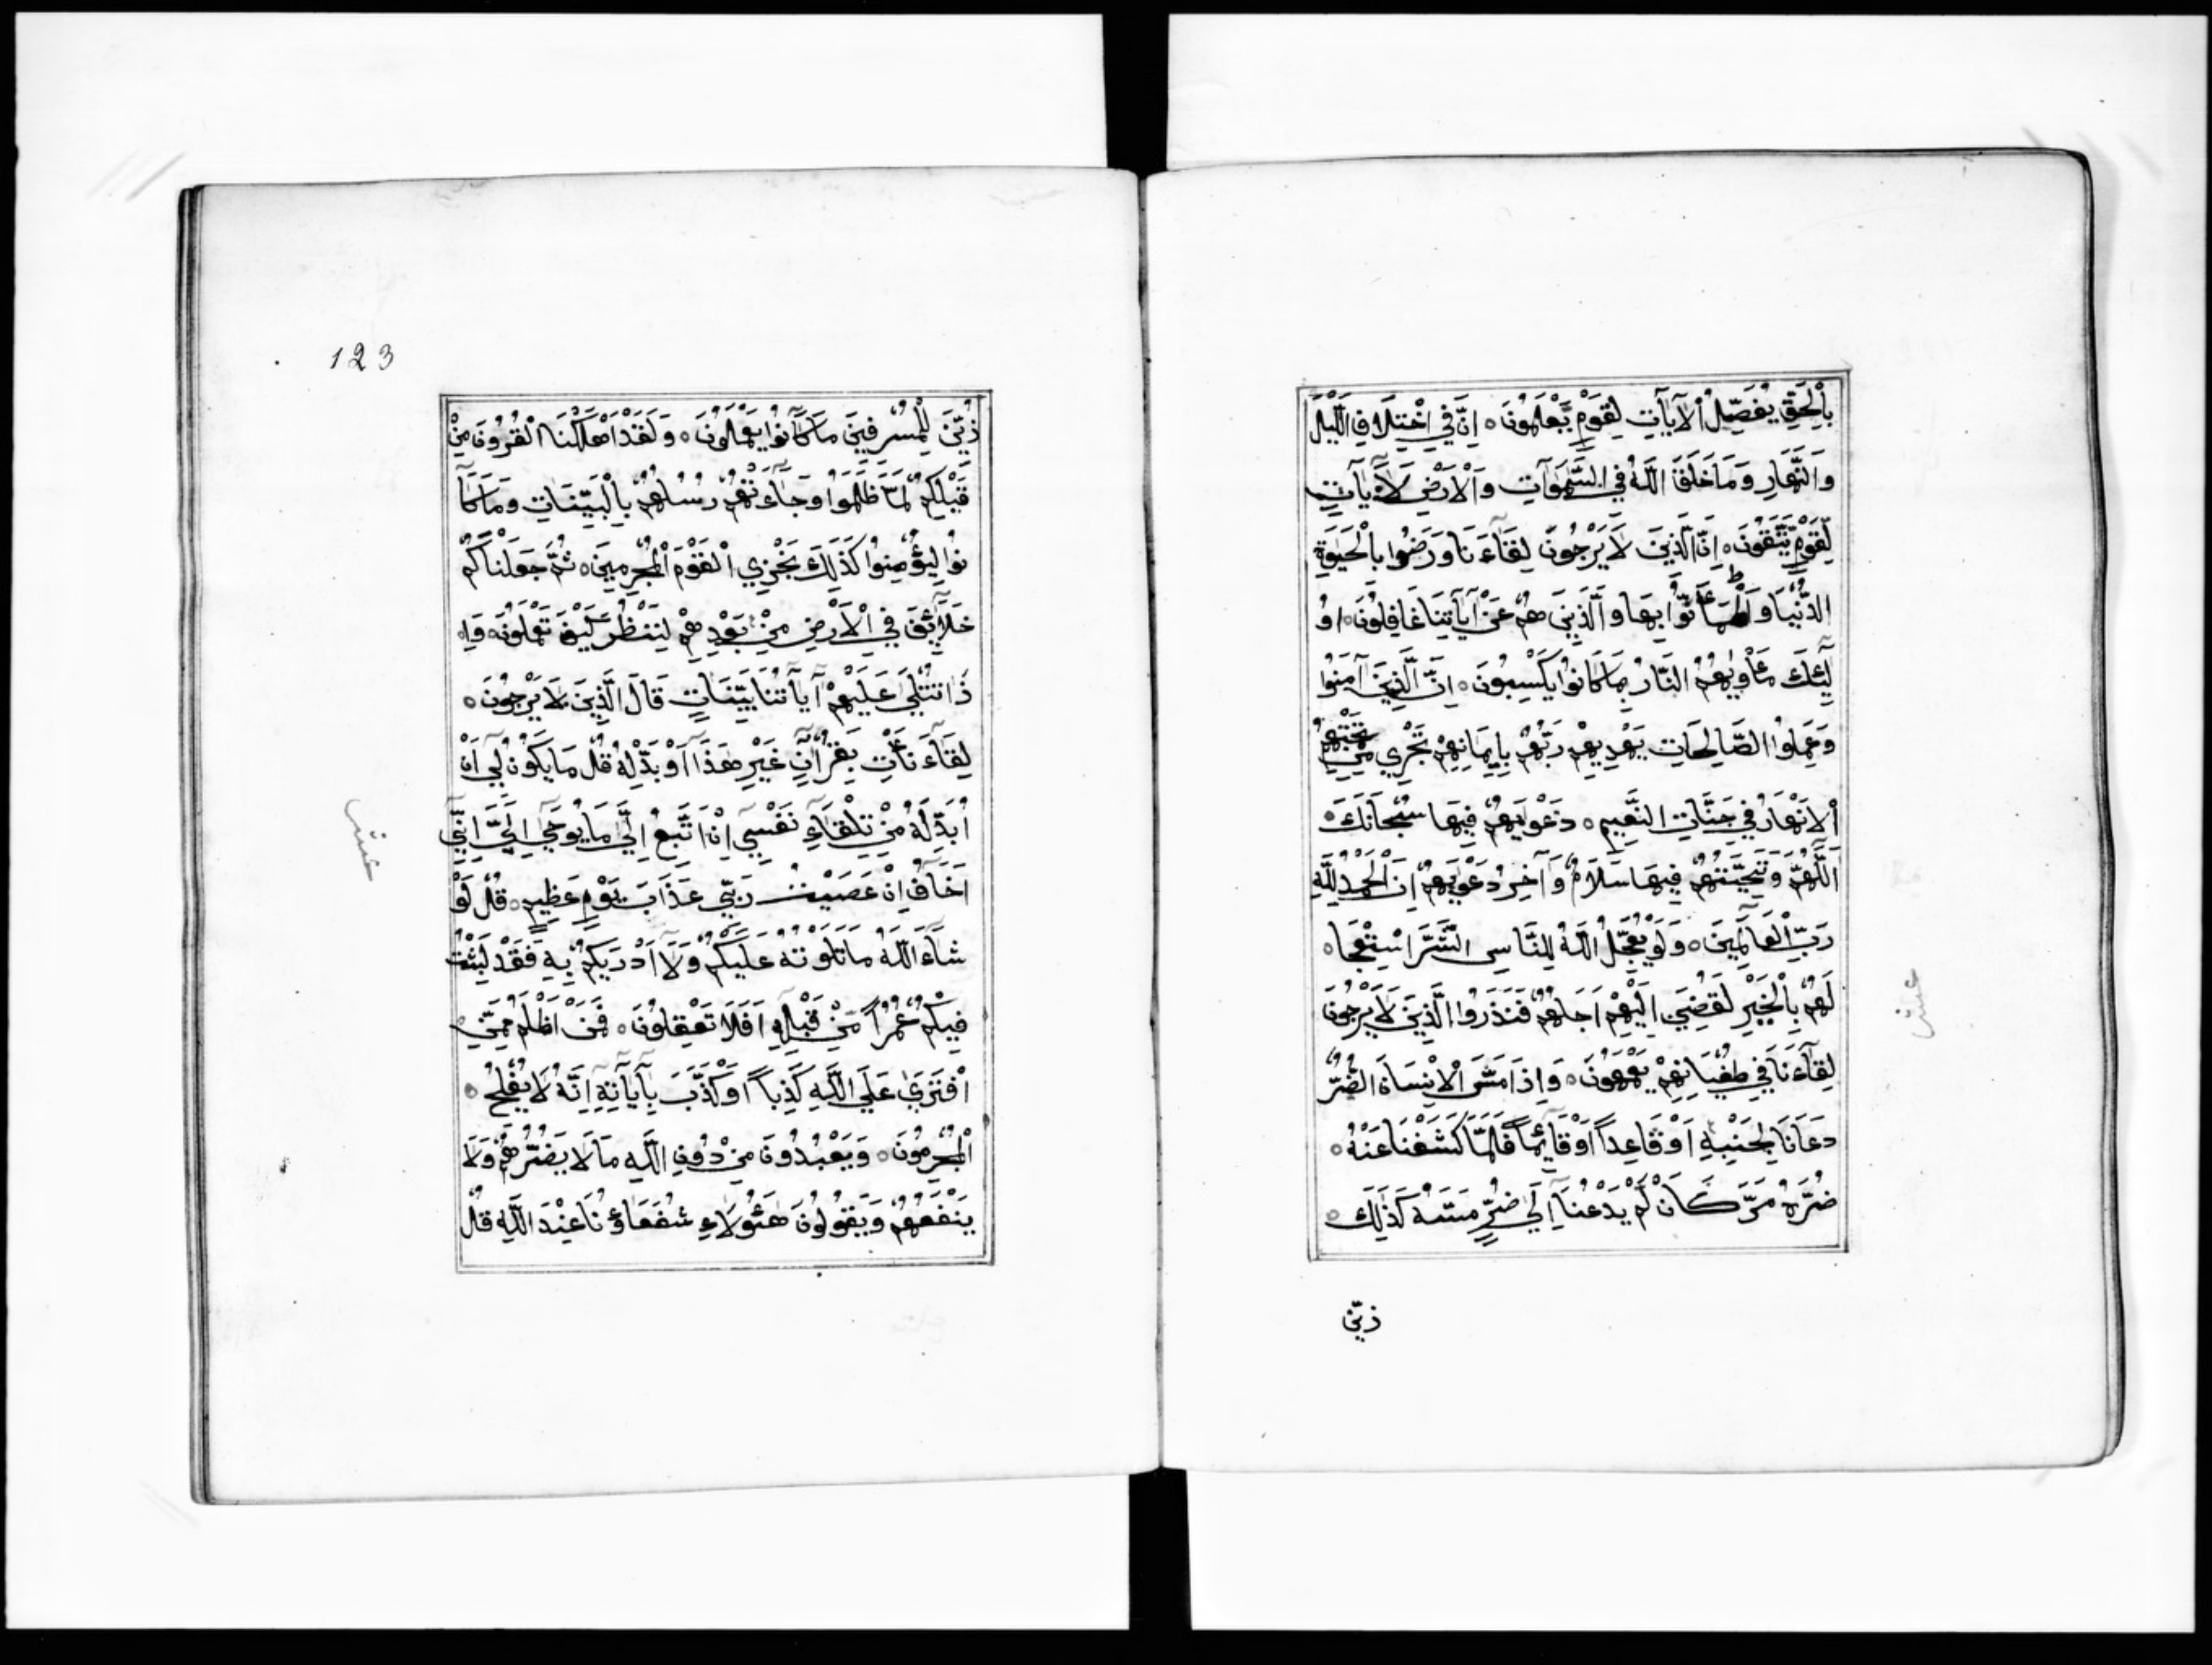 بِالْحَقِّ يُفَصِّلُ الْآيَاتِ لِقَوْمٍ يَعْلَمُونَ ۝ اِنَّ فِي اخْتِلَافِ اللَّيْلِ
وَالنَّهَارِ وَمَا خَلَقَ اللَّهُ فِي السَّمٰوَاتِ وَالْاَرْضِ لَآيَاتٍ
لِقَوْمٍ يَتَّقُونَ ۝ اِنَّ الَّذِينَ لَا يَرْجُونَ لِقَاءَنَا وَرَضُوا بِالْحَيٰوةِ
الدُّنْيَا وَاطْمَأَنُّوا بِهَا وَالَّذِينَ هُمْ عَنْ آيَاتِنَا غَافِلُونَ ۝ اُو
لٰئِكَ مَأْوٰيهُمُ النَّارُ بِمَا كَانُوا يَكْسِبُونَ ۝ اِنَّ الَّذِينَ آمَنُوا
وَعَمِلُوا الصَّالِحَاتِ يَهْدِيهِمْ رَبُّهُمْ بِاِيمَانِهِمْ تَجْرِي مِنْ تَحْتِهِمُ
الْاَنْهَارُ فِي جَنَّاتِ النَّعِيمِ ۝ دَعْوٰيهُمْ فِيهَا سُبْحَانَكَ ۝
اللَّهُمَّ وَتَحِيَّتُهُمْ فِيهَا سَلَامٌ وَآخِرُ دَعْوٰيهُمْ اَنِ الْحَمْدُ لِلَّهِ
رَبِّ الْعَالَمِينَ ۝ وَلَوْ يُعَجِّلُ اللَّهُ لِلنَّاسِ الشَّرَّ اسْتِعْجَا ۝
لَهُمْ بِالْخَيْرِ لَقُضِيَ اِلَيْهِمْ اَجَلُهُمْ فَنَذَرُوا الَّذِينَ لَا يَرْجُونَ
لِقَاءَنَا فِي طُغْيَانِهِمْ يَعْمَهُونَ ۝ وَاِذَا مَسَّ الْاِنْسَانَ الضُّرُّ
دَعَانَا لِجَنْبِهِ اَوْ قَاعِداً اَوْ قَائِماً فَلَمَّا كَشَفْنَا عَنْهُ ۝
ضُرَّهُ مَرَّ كَاَنْ لَمْ يَدْعُنَا اِلٰى ضُرٍّ مَسَّهُ كَذٰلِكَ ۝
زيّن
عشر
123
زُيِّنَ لِلْمُسْرِفِينَ مَا كَانُوا يَعْمَلُونَ ۝ وَلَقَدْ اَهْلَكْنَا الْقُرُونَ مِنْ
قَبْلِكُمْ لَمَّا ظَلَمُوا وَجَاءَتْهُمْ رُسُلُهُمْ بِالْبَيِّنَاتِ وَمَا كَا
نُوا لِيُؤْمِنُوا كَذٰلِكَ نَجْزِي الْقَوْمَ الْمُجْرِمِينَ ۝ ثُمَّ جَعَلْنَاكُمْ
خَلَائِفَ فِي الْاَرْضِ مِنْ بَعْدِهِمْ لِنَنْظُرَ كَيْفَ تَعْمَلُونَ ۝ وَاِ
ذَا تُتْلٰى عَلَيْهِمْ آيَاتُنَا بَيِّنَاتٍ قَالَ الَّذِينَ لَا يَرْجُونَ ۝
لِقَاءَنَا ئْتِ بِقُرْاٰنٍ غَيْرِ هٰذَا اَوْ بَدِّلْهُ قُلْ مَا يَكُونُ لِي اَنْ
اُبَدِّلَهُ مِنْ تِلْقَاءِ نَفْسِي اِنْ اَتَّبِعُ اِلَّا مَا يُوحٰى اِلَيَّ اِنِّي
اَخَافُ اِنْ عَصَيْتُ رَبِّي عَذَابَ يَوْمٍ عَظِيمٍ ۝ قُلْ لَوْ
شَاءَ اللَّهُ مَا تَلَوْتُهُ عَلَيْكُمْ وَلَا اَدْرٰيكُمْ بِهِ فَقَدْ لَبِثْتُ
فِيكُمْ عُمُراً مِنْ قَبْلِهِ اَفَلَا تَعْقِلُونَ ۝ فَمَنْ اَظْلَمُ مِمَّنِ ۝
افْتَرٰى عَلَى اللَّهِ كَذِباً اَوْ كَذَّبَ بِآيَاتِهِ اِنَّهُ لَا يُفْلِحُ ۝
الْمُجْرِمُونَ ۝ وَيَعْبُدُونَ مِنْ دُونِ اللَّهِ مَا لَا يَضُرُّهُمْ وَلَا
يَنْفَعُهُمْ وَيَقُولُونَ هٰؤُلَاءِ شُفَعَاؤُنَا عِنْدَ اللَّهِ قُلْ
عشر